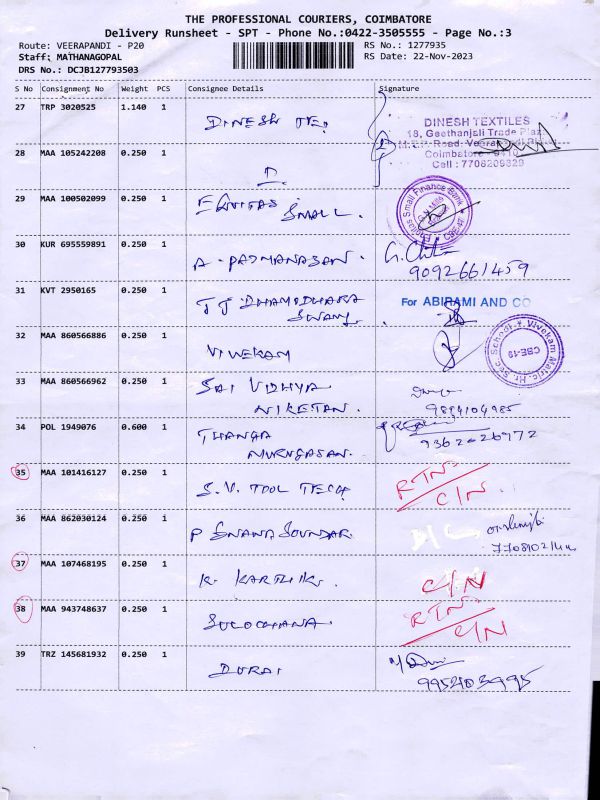 THE PROFESSIONAL COURIERS, COIMBATORE
Delivery Runsheet - SPT - Phone No.:0422-3505555 - Page No.:3
Route: VEERAPANDI - P20 RS No.: 1277935
Staff: MATHANAGOPAL RS Date: 22-Nov-2023
DRS No.: DCJB127793503
S No Consignment No Weight PCS Consignee Details Signature
27 TRP 3020525 1.140 1 DINESH TEX.
DINESH TEXTILES
18, Geethanjali Trade Plaz
Coimbatore
Cell : 7708209329
28 MAA 105242208 0.250 1 D.
29 MAA 100502099 0.250 1 EQUITAS
SMALL. Small Finance Bank
30 KUR 695559891 0.250 1 A. PADMANABAN.
9092661459
31 KVT 2950165 0.250 1 T J DHAMODHARA
SWAMY. For ABIRAMI AND CO
32 MAA 860566886 0.250 1 VIVEKAM
Vivekam Matric. Hr. Sec. School
CBE-19
33 MAA 860566962 0.250 1 SAI VIDHYA
NIKETAN. 9894104985
34 POL 1949076 0.600 1 THANGA
MURUGASAN. 9362626972
35 MAA 101416127 0.250 1 S.V. TOOL TECH RTN
C/N
36 MAA 862030124 0.250 1 P GNANA SOUNDAR.
37 MAA 107468195 0.250 1 K. KARTHIK. C/N
38 MAA 943748637 0.250 1 SULOCHANA. RTN
C/N
39 TRZ 145681932 0.250 1 DURAI
9952103995